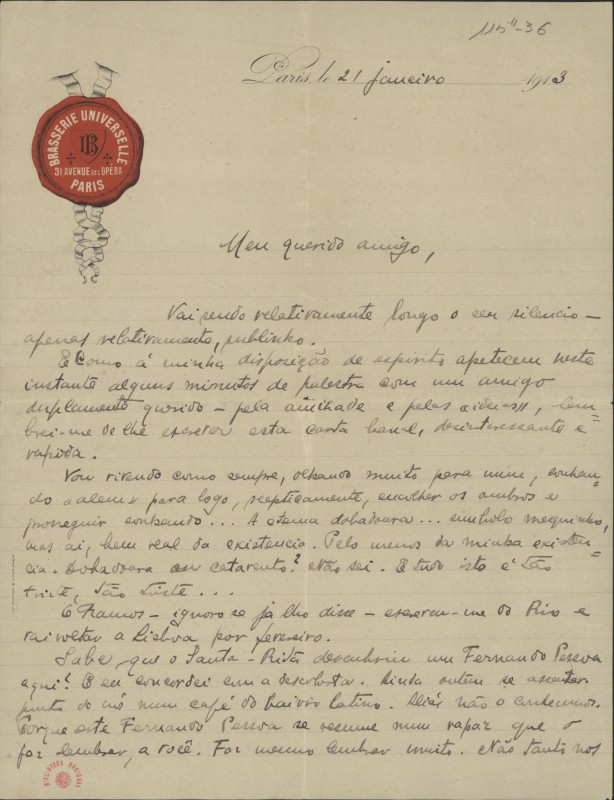 115¹¹-36
Paris, le 21 janeiro 1913
BRASSERIE UNIVERSELLE
31 AVENUE DE L'OPERA
PARIS
Meu querido amigo,
Vai sendo relativamente longo o seu silencio —
apenas relativamente, sublinho.
E como á minha disposição de espirito apetecem neste
instante alguns minutos de palestra com um amigo
duplamente querido — pela amizade e pelas ideias, lem=
brei-me de lhe escrever esta carta banal, desinteressante e
rapida.
Vou vivendo como sempre, olhando muito para mim, sonhan=
do alem para logo, scepticamente, encolher os ombros e
proseguir sonhando... A eterna dobadoura... simbolo mesquinho,
mas ai, bem real da existencia. Pelo menos da minha existen=
cia. Dobadoura ou catavento? Não sei. E tudo isto é tão
triste, tão triste...
O Ramos — ignoro se já lho disse — escreveu-me do Rio e
vai voltar a Lisboa por fevereiro.
Sabe que o Santa-Rita descobriu um Fernando Pessoa
aqui? E eu concordei com a descoberta. Ainda ontem se assentou
perto de nós num café do bairro latino. Aliás não o conhecemos.
Porque este Fernando Pessoa se resume num rapaz que o
faz lembrar, a você. Faz mesmo lembrar muito. Não tanto nos
BIBLIOTECA NACIONAL